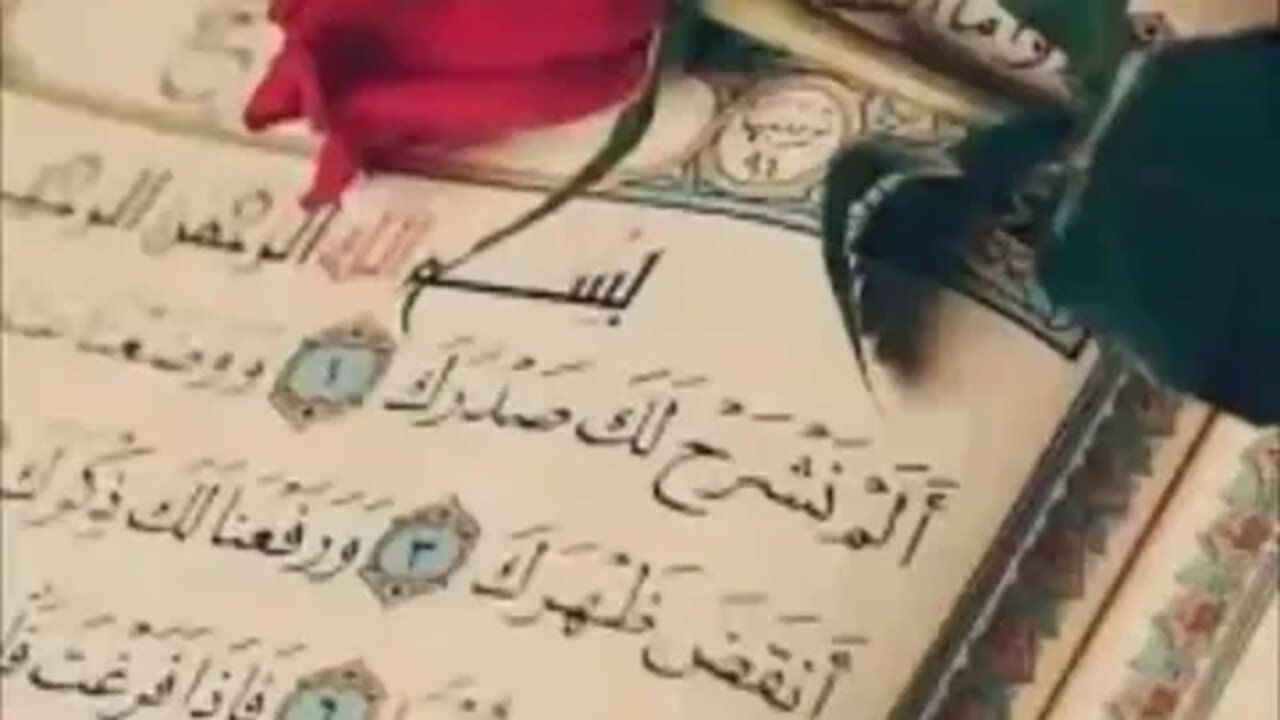 بِسْمِ اللَّهِ الرَّحْمَٰنِ
أَلَمْ نَشْرَحْ لَكَ صَدْرَكَ ١ وَوَضَعْنَا
أَنقَضَ ظَهْرَكَ ٣ وَرَفَعْنَا لَكَ ذِكْرَكَ
٦ فَإِذَا فَرَغْتَ